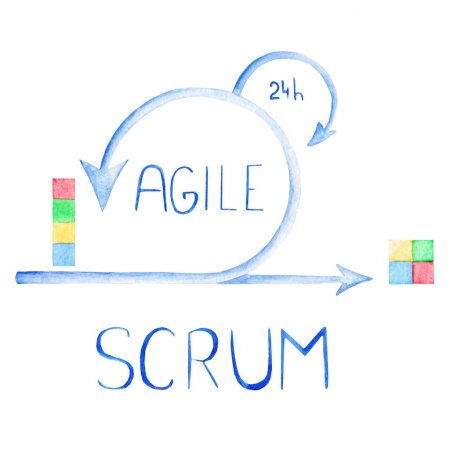 24h
AGILE
SCRUM